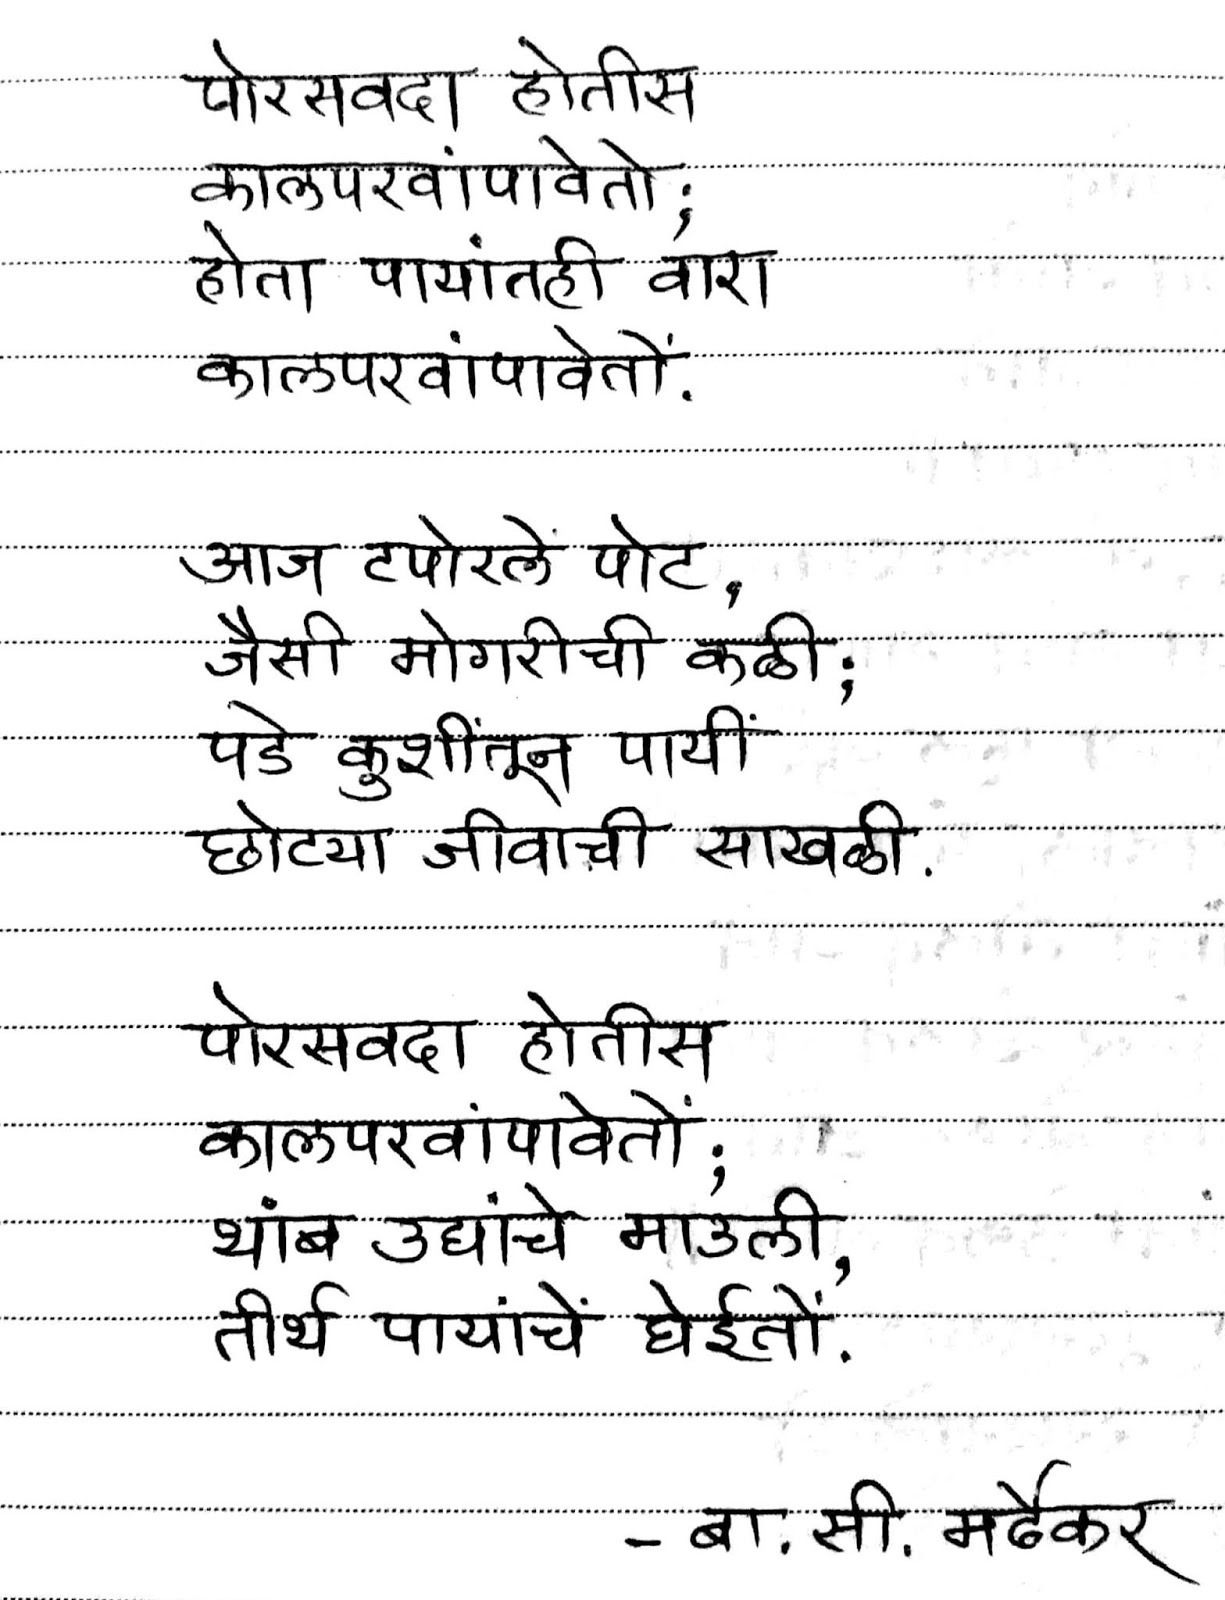 पोरसवदा होतीस
कालपरवांपावेतो;
होता पायांतही वारा
कालपरवांपावेतों.
आज टपोरलें पोट,
जैसी मोगरीची कळी;
पडे कुशींतून पायीं
छोट्या जीवाची साखळी.
पोरसवदा होतीस
कालपरवांपावेतों;
थांब उद्यांचे माउली,
तीर्थ पायांचें घेईतों.
- बा. सी. मर्ढेकर